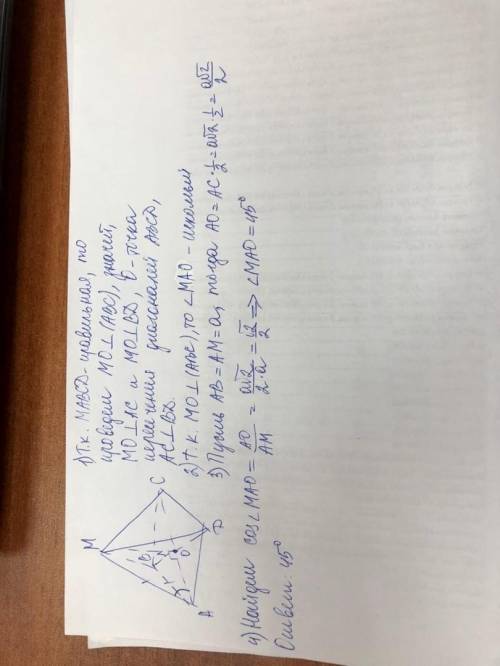 M
B
C
O
A
D
1) Т.к. MABCD - правильная, то
проведем MO⊥(ABC), значит,
MO⊥AC и MO⊥BD, O - точка
пересечения диагоналей ABCD,
AC⊥BD.
2) Т.к. MO⊥(ABC), то ∠MAO - искомый
3) Пусть AB = AM = a, тогда AO = AC · 1/2 = a√2 · 1/2 = a√2/2
4) Найдем cos∠MAO = AO/AM = a√2/2·a = √2/2 ⇒ ∠MAO = 45°
Ответ: 45°